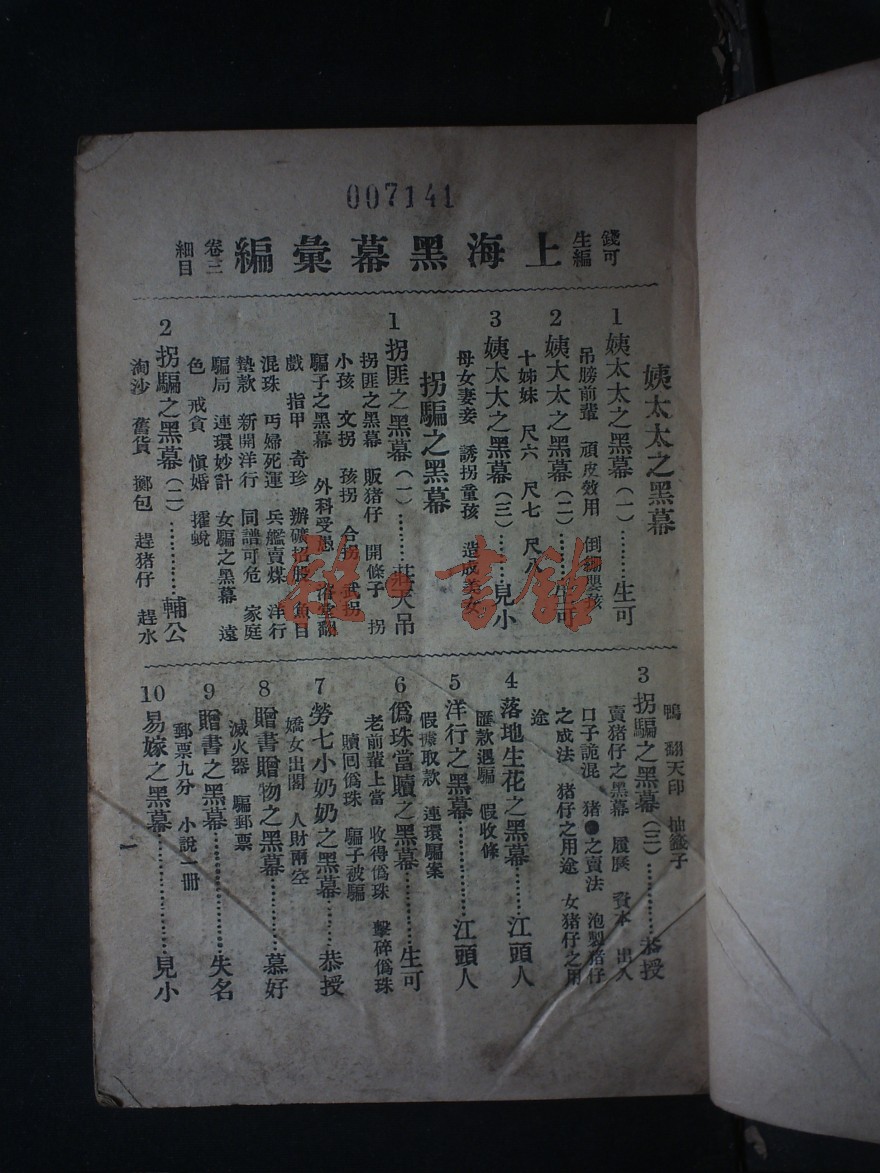 007141
錢可
生編
上海黑幕彙編
卷三
細目
姨太太之黑幕
1 姨太太之黑幕(一)………生可
吊膀前輩 頑皮效用 倒繃嬰孩
2 姨太太之黑幕(二)………生可
十姊妹 尺六 尺七 尺八
3 姨太太之黑幕(三)………見小
母女妻妾 誘拐童孩 造成美女
拐騙之黑幕
1 拐匪之黑幕(一)………莊天吊
拐匪之黑幕 販猪仔 開條子 拐
小孩 文拐 孩拐 合拐 武拐
騙子之黑幕 外科受愚 浴堂翻
戲 指甲 奇珍 辦礦招股 魚目
混珠 丐婦死運 兵艦賣煤 洋行
墊款 新開洋行 同譜可危 家庭
騙局 連環妙計 女騙之黑幕 遠
色 戒貪 愼婚 擢蛻
2 拐騙之黑幕(二)…………輔公
淘沙 舊貨 擲包 趕猪仔 趕水
鴨 翻天印 抽籤子
3 拐騙之黑幕(三)…………恭授
賣猪仔之黑幕 履歷 資本 出入
口子詭混 猪●之賣法 泡製猪仔
之成法 猪仔之用途 女猪仔之用
途
4 落地生花之黑幕………江頭人
匯款遇騙 假收條
5 洋行之黑幕……………江頭人
假據取款 連環騙案
6 僞珠當贖之黑幕…………生可
老前輩上當 收得僞珠 擊碎僞珠
贖囘僞珠 騙子被騙
7 勞七小奶奶之黑幕………恭授
嬌女出閣 人財兩空
8 贈書贈物之黑幕…………慕好
滅火器 騙郵票
9 贈書之黑幕………………失名
郵票九分 小說一冊
10 易嫁之黑幕………………見小
一